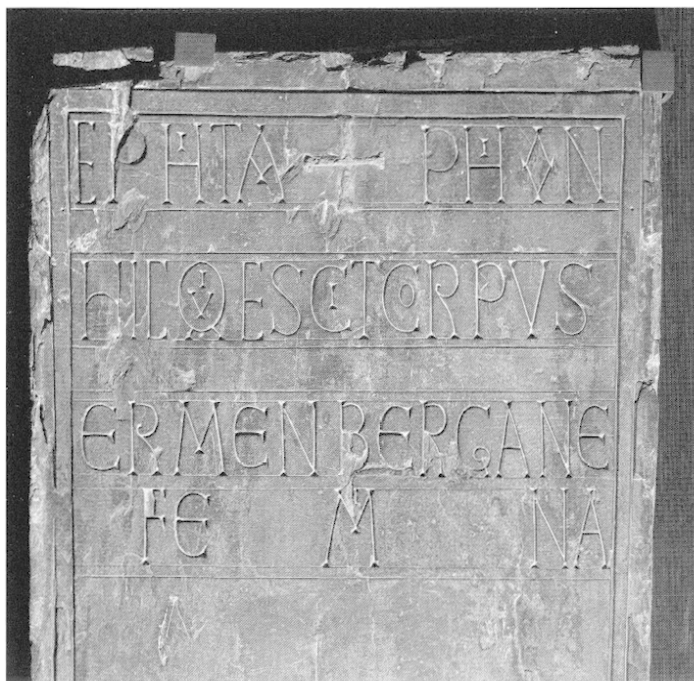 EPHITA + PHION
HIC QVIESCIT CORPVS
ERMENBERGANE
FE M NA